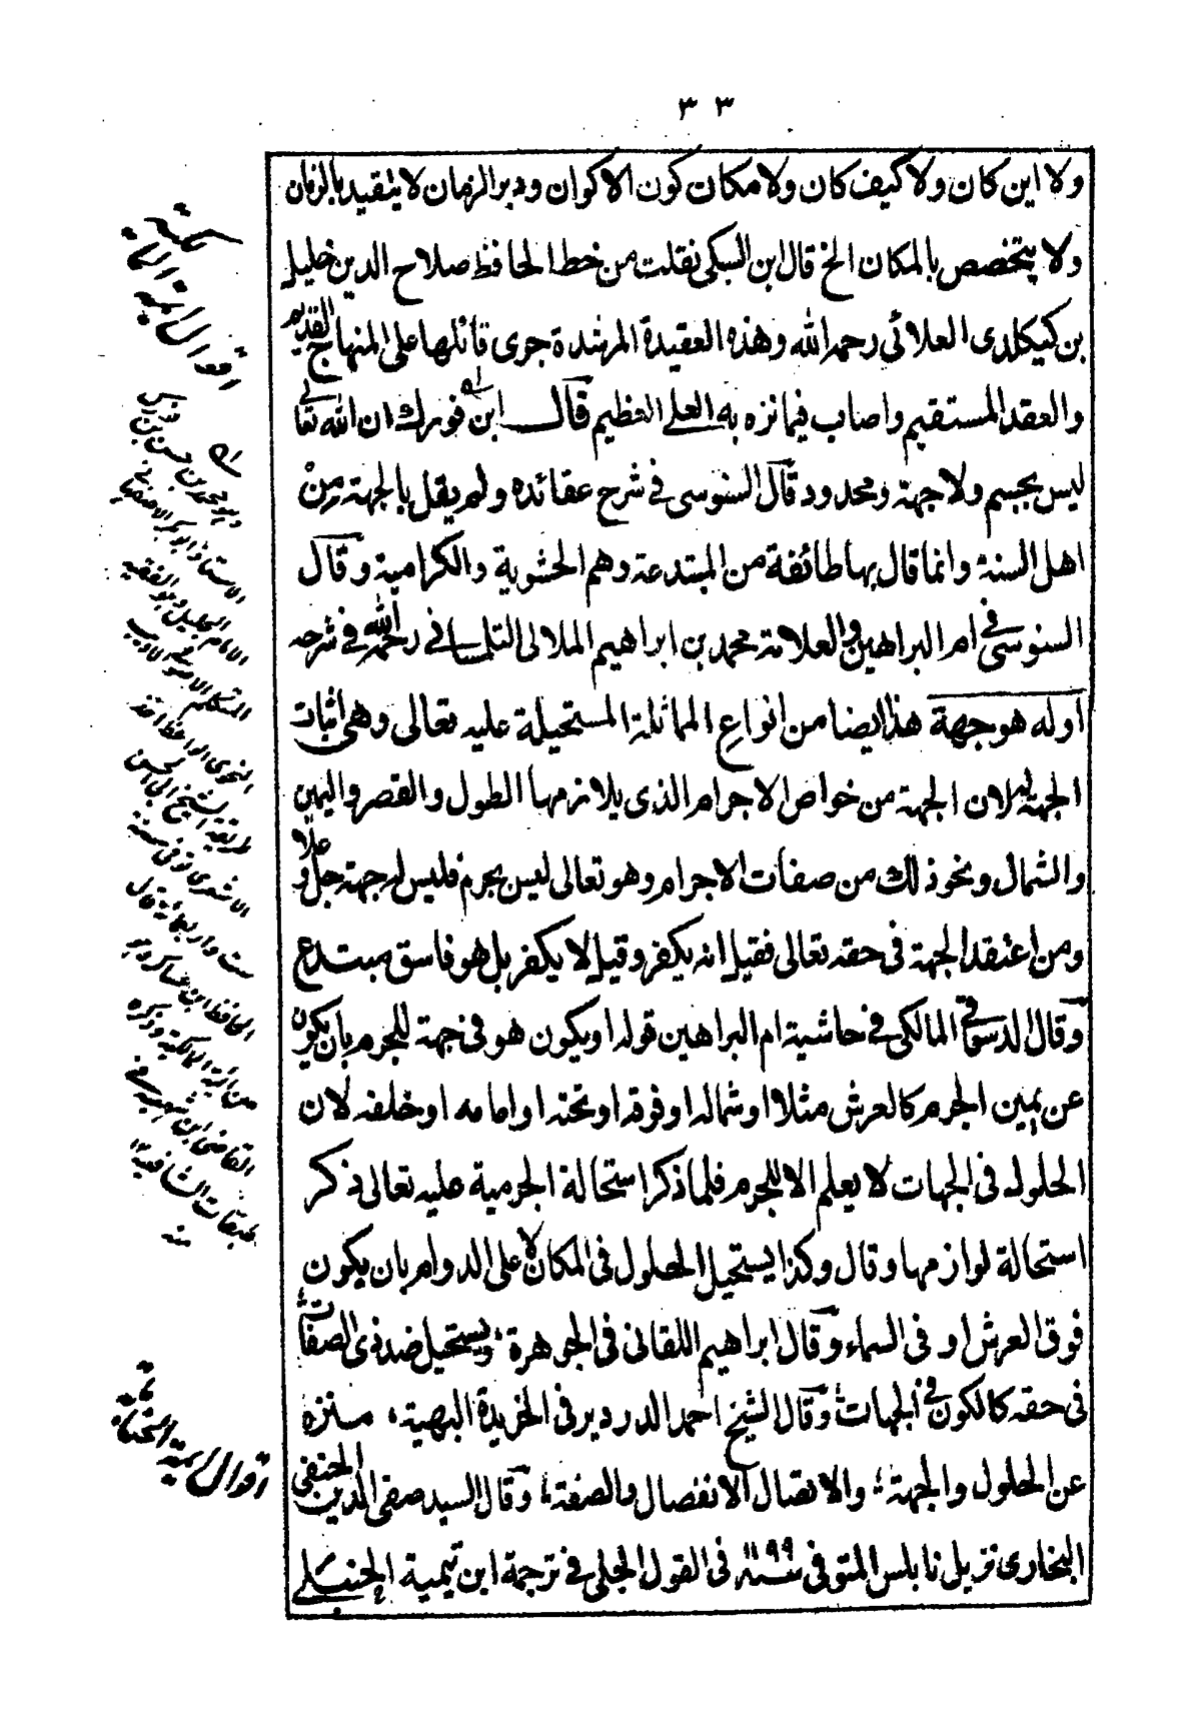 ٣٣
ولا اين كان ولا كيف كان ولا مكان كون الاكوان ودبر الزمان لا يتقيد بالزمان
ولا يتخصص بالمكان الخ قال ابن السبكى نقلت من خط الحافظ صلاح الدين خليل
بن كيكلدى العلائى رحمه الله وهذه العقيدة المرشدة جرى قائلها على المنهاج القديم
والعقد المستقيم واصاب فيما نزه به العلى العظيم قال ابن فورك ان الله تعالى
ليس بجسم ولا جهة ومحدود قال السنوسى فى شرح عقائده ولم يقل بالجهة من
اهل السنة وانما قال بها طائفة من المبتدعة وهم الحشوية والكرامية وقال
السنوسى فى ام البراهين والعلامة محمد بن ابراهيم الملالى التلمسانى رحمه الله فى شرحه
اوله هو جهة هذا ايضا من انواع المماثلة المستحيلة عليه تعالى وهى اثبات
الجهة له لان الجهة من خواص الاجرام الذى يلازمها الطول والقصر واليمين
والشمال ونحو ذلك من صفات الاجرام وهو تعالى ليس بجرم فليس له جهة جل وعلا
ومن اعتقد الجهة فى حقه تعالى فقيل انه يكفر وقيل لا يكفر بل هو فاسق مبتدع
وقال الدسوقى المالكى فى حاشية ام البراهين قوله او يكون هو فى جهة للجرم بان يكون
عن يمين الجرم كالعرش مثلا او شماله او فوقه او تحته او امامه او خلفه لان
الحلول فى الجهات لا يعلم الا للجرم فلما ذكر استحالة الجرمية عليه تعالى ذكر
استحالة لوازمها وقال وكذا يستحيل الحلول فى المكان لا على الدوام بان يكون
فوق العرش او فى السماء وقال ابراهيم اللقانى فى الجوهرة ؛ ويستحيل ضد ذى الصفات
فى حقه كالكون فى الجهات ؛ وقال الشيخ احمد الدردير فى الخريدة البهية ، منزه
عن الحلول والجهة ؛ والاتصال الانفصال والصفة ؛ وقال السيد صفى الدين الحنفى
البخارى نزيل نابلس المتوفى سنة ١١٩٩ فى القول الجلى فى ترجمة ابن تيمية الحنبلى
اقوال ائمة المالكية
هو محمد بن حسن بن
الاستاذ ابو بكر الاصفهانى
الامام الجليل والفقيه
المتكلم الاصولى الاديب
النحوى الواعظ اخذ
طريقة الشيخ ابى الحسن
الاشعرى توفى سنة
ست واربعمائة قال
الحافظ ابن عساكر
من ائمة المالكية وذكره
القاضى ابن شهبة فى
طبقات الشافعية ١٢
منه
اقوال ائمة الحنابلة